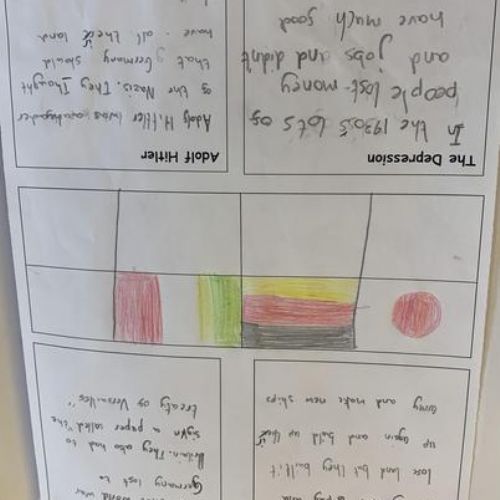 a pay and
lose land but they built it
up again and build up
army and make new ships
world war
Germany lost to
Britain. They also had to
sign a paper called "the
treaty of Versailles"
The Depression
In the 1930s lots of
people lost money
and jobs and didn't
have much good
Adolf Hitler
Adolf Hitler was
of the Nazis. They Thought
that Germany should
have all there land